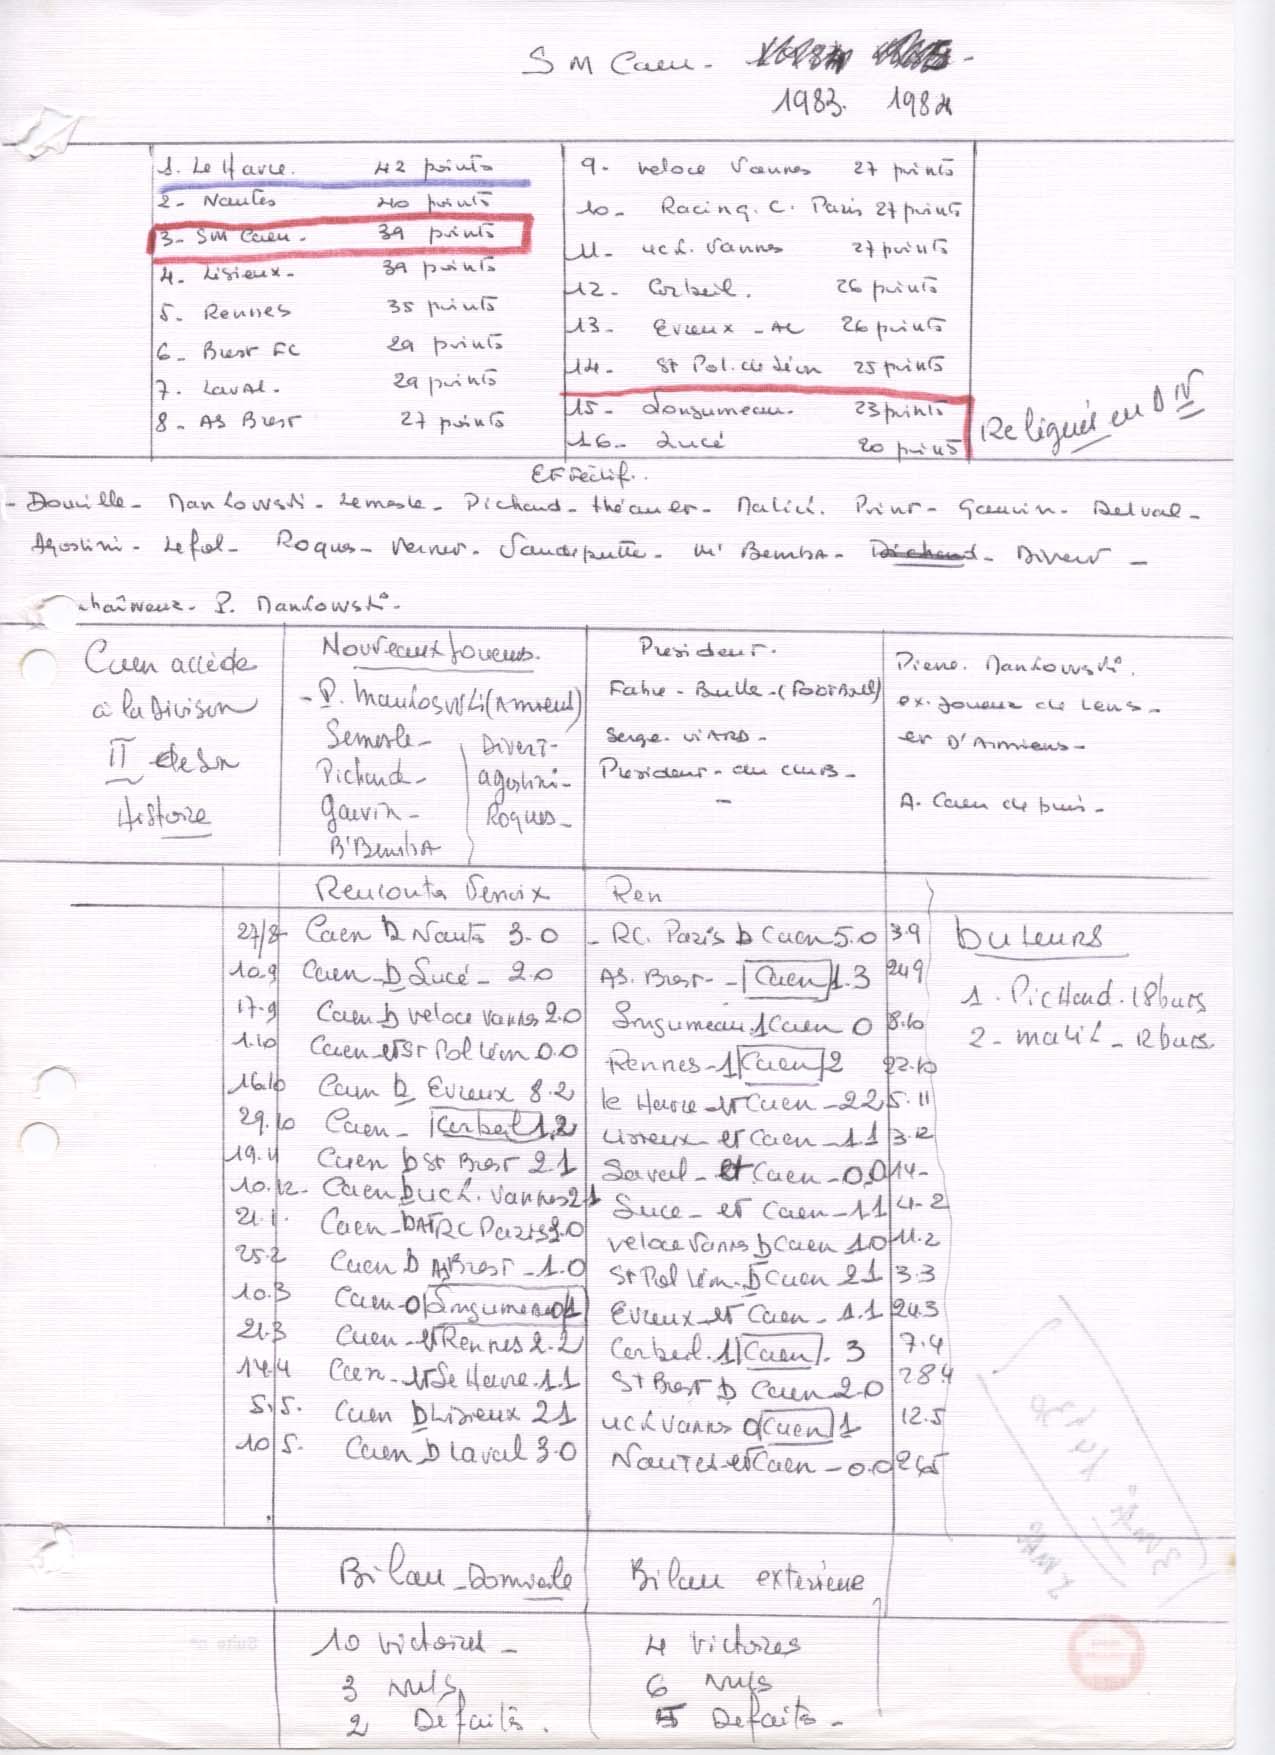 S M Caen -
1983. 1984
1. Le Havre. 42 points
2- Nantes 40 points
3- SM Caen. 39 points
4- Lisieux- 39 points
5- Rennes 35 points
6- Brest FC 29 points
7. Laval. 29 points
8- AS Brest 27 points
9- veloce Vannes 27 points
10- Racing. C. Paris 27 points
11- uc L. Vannes 27 points
12- Corbeil. 26 points
13- Evreux - AC 26 points
14- St Pol. de Léon 25 points
15- Longumeau. 23 points
16- Lucé 20 points
Religués en D IV
Effectif..
- Douville- Mankowski- Lemesle- Pichard- théauer- Malick. Prinr- Gauvin- Delval-
Agostini- Lefol- Roques- Verner- Vandeputte- M'Bemba- Pichard- Divert -
P. Mankowski-
Caen accède
à la Division
II de son
Histoire
Nouveaux Joueurs.
- P. Mankoswski (Amiens)
Semesle- Divert-
Pichard- agostini-
Gauvin- Roques-
B'BembA
President.
Fabre- Bulle-(FootBall)
Serge. ViARD-
President- du cluB-
-
Pierre. Mankowski.
ex. joueur de Lens-
et D'Amiens-
A. Caen depuis-
Rencontres Venoix Ren
27/8 Caen D Nantes 3.0 - RC. Paris D Caen 5.0 3.9
10.9 Caen - D Lucé - 2.0 AS. Brest- - Caen 1.3 24.9
17.9 Caen D veloce vannes 2.0 Longumeau. 1 Caen 0 8.10
1.10 Caen et St Pol Léon 0.0 Rennes-1 Caen 2 22.10
16.10 Caen D Evreux 8.2 le Havre et Caen - 2 2 5.11
29.10 Caen - Corbeil 1.2 Lisieux- et Caen - 1.1 3.12
19.11 Caen D St Brest 2 1 Laval - et Caen - 0.0 14-
10.12- Caen D uc L. Vannes 2 1 Luce- et Caen - 1 1 4-2
21.1. Caen - D RC Paris 3.0 veloce Vannes D Caen 1.0 11.2
25.2 Caen D AS Brest - 1.0 St Pol Léon- D Caen 2 1 3.3
10.3 Caen 0 Longumeau 1 Evreux- et Caen - 1.1 24.3
21.3 Caen - et Rennes 2.2 Corbeil. 1 Caen. 3 7.4
14.4 Caen - et Le Havre 1.1 St Brest D Caen 2.0 28.4
5.5. Caen D Lisieux 2 1 uc L Vannes 0 Caen 1 12.5
10 5. Caen D Laval 3.0 Nantes et Caen - 0.0
buteurs
1. Pichard. 18 buts
2- malik - 12 buts.
Bilan - Domicile Bilan exterieur
10 victoires - 4 Victoires
3 Nuls 6 Nuls
2 Défaites. 5 Défaites -